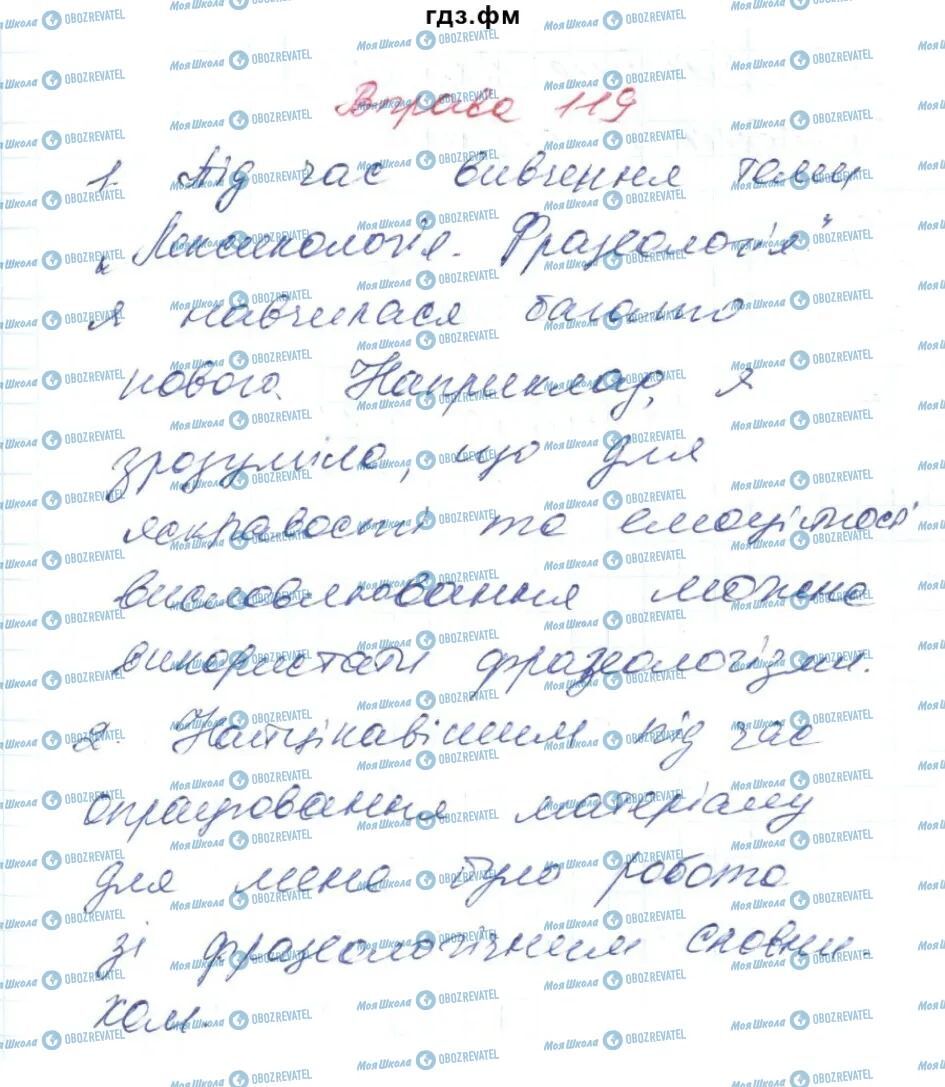 гдз.фм
Вправа 119
1. Під час вивчення теми
„Лексикологія. Фразеологія"
я навчилася багато
нового. Наприклад, я
зрозуміла, що для
яскравості та емоційності
висловлювання можна
використати фразеологізми.
2. Найцікавішим під час
опрацювання матеріалу
для мене було робота
зі фразеологічним словни-
ком.
Моя Школа OBOZREVATEL